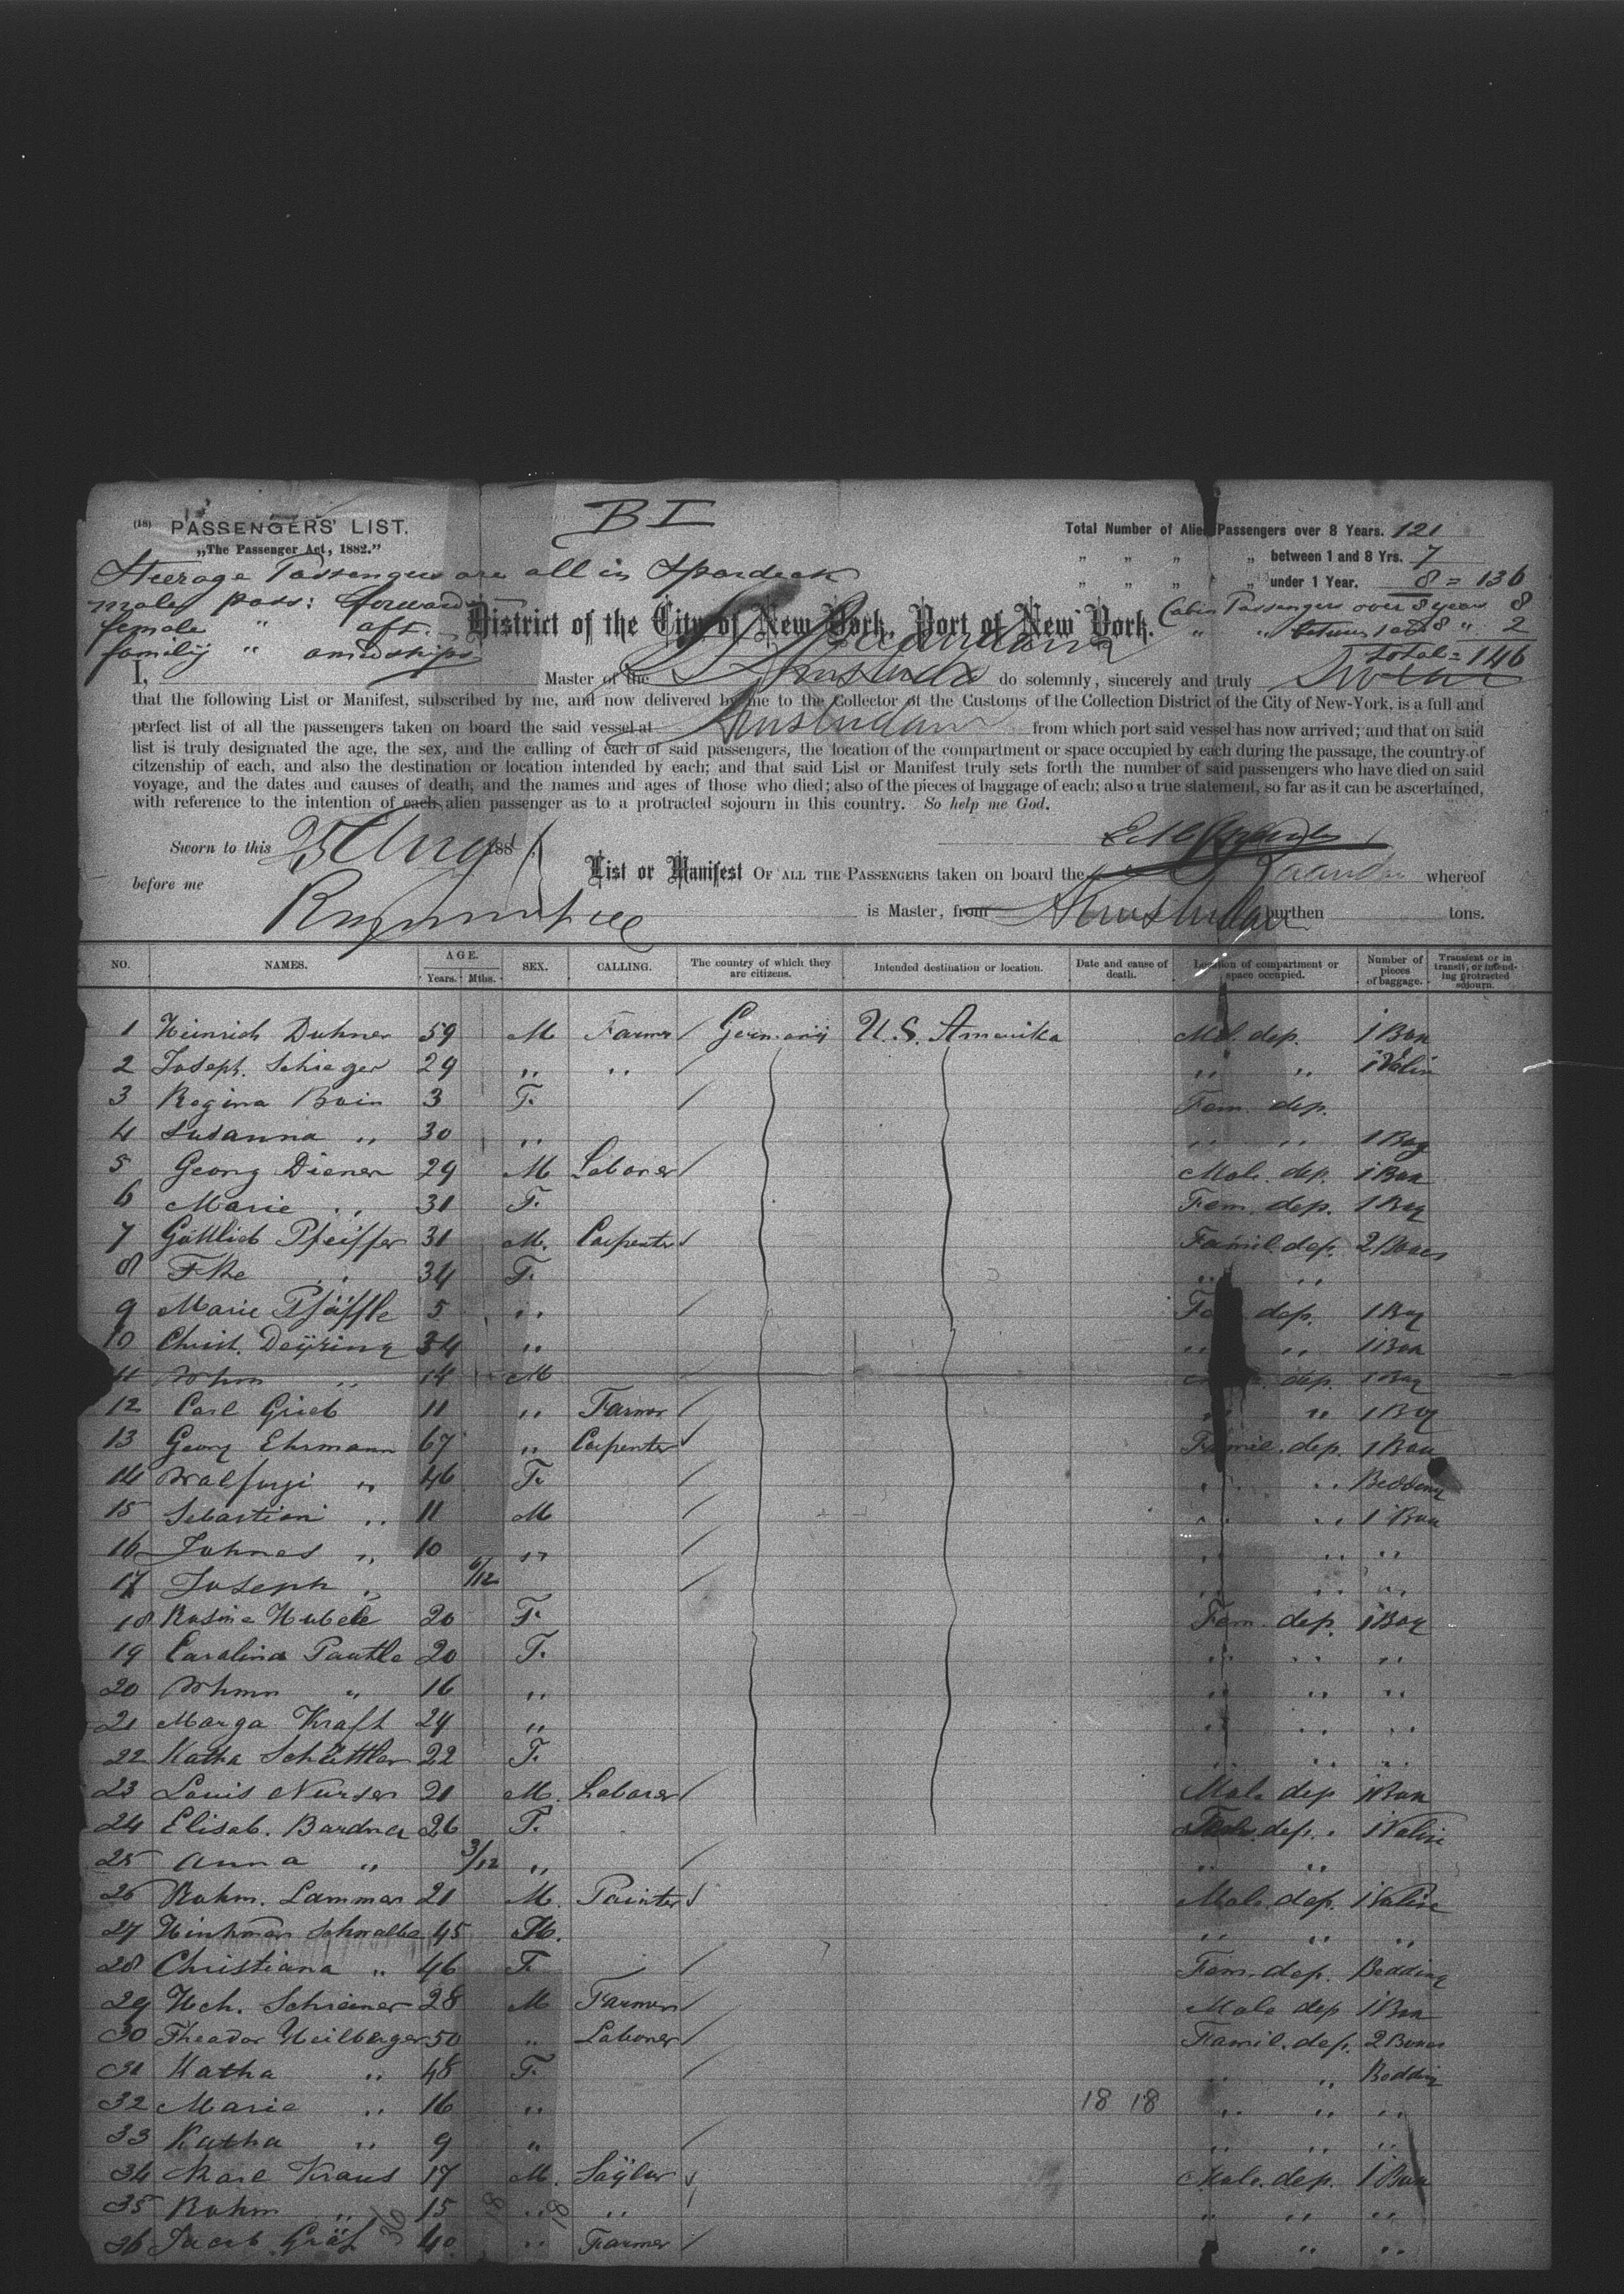 BI
(18) PASSENGERS' LIST.
„The Passenger Act, 1882."
Steerage Passengers are all in Spardeck
males pass: forward
female " aft.
familÿ " amidships
Total Number of Alien Passengers over 8 Years. 121
„ „ „ „ between 1 and 8 Yrs. 7
„ „ „ „ under 1 Year. 8 = 136
Cabin Passengers over 8 years 8
„ „ between 1 and 8 " 2
total = 146
District of the City of New York, Port of New York.
I, Master of the do solemnly, sincerely and truly
that the following List or Manifest, subscribed by me, and now delivered by me to the Collector of the Customs of the Collection District of the City of New-York, is a full and
perfect list of all the passengers taken on board the said vessel at Amsterdam from which port said vessel has now arrived; and that on said
list is truly designated the age, the sex, and the calling of each of said passengers, the location of the compartment or space occupied by each during the passage, the country of
citzenship of each, and also the destination or location intended by each; and that said List or Manifest truly sets forth the number of said passengers who have died on said
voyage, and the dates and causes of death, and the names and ages of those who died; also of the pieces of baggage of each; also a true statement, so far as it can be ascertained,
with reference to the intention of each alien passenger as to a protracted sojourn in this country. So help me God.
Sworn to this 25 Aug 188
before me
List or Manifest OF ALL THE PASSENGERS taken on board the Zaandam whereof
is Master, from Amsterdam burthen tons.
NO. NAMES. AGE. Years. Mths. SEX. CALLING. The country of which they are citizens. Intended destination or location. Date and cause of death. Location of compartment or space occupied. Number of pieces of baggage. Transient or in transit, or intending protracted sojourn.
1 Heinrich Duhner 59 M Farmer Germanÿ U.S. Amerika Mal. dep. 1 Box
2 Joseph. Schieger 29 „ „ „ „ 1 Valin
3 Regina Boin 3 F. Fem. dep.
4 Susanna „ 30 „ „ „ 1 Bag
5 Georg Diener 29 M Laborer Male. dep. 1 Box
6 Marie „ 31 F. Fem. dep. 1 Bag
7 Gottlieb Pfeiffer 31 M. Carpenter Famil. dep. 2 Boxes
8 Fke „ 34 F. „ „
9 Marie Pfäffle 5 „ Fem dep. 1 Bag
10 Christ. Deÿring 34 „ „ „ 1 Box
11 Whm „ 14 M dep. 1 Bag
12 Carl Grieb 11 „ Farmer „ „ 1 Bag
13 Georg Ehrmann 67 „ Carpenter Famil. dep. 1 Box
14 Walfurgi „ 46 F. „ „ Bedding
15 Sebastian „ 11 M „ „ 1 Box
16 Johnes „ 10 „ „ „ „
17 Joseph „ 6/12 „ „ „
18 Rosine Hubele 20 F. Fem. dep. 1 Bag
19 Carolina Pautle 20 F. „ „ „
20 Whmn „ 16 „ „ „ „
21 Marga Kraft 24 „ „ „ „
22 Katha Schüttler 22 F. „ „ „
23 Louis Nurser 21 M. Laborer Male dep 1 Box
24 Elisab. Bardner 26 F. dep. 1 Valise
25 Anna „ 3/12 „ „ „
26 Rohm. Lammer 21 M. Painter Male. dep. 1 Valise
27 Schwalbe 45 M. „ „ „
28 Christiana „ 46 F. Fem. dep. Bedding
29 Hch. Schreiner 28 M Farmer Male dep 1 Box
30 Theodor Heilberger 50 „ Laborer Famil. dep. 2 Boxes
31 Katha „ 48 F. „ „ Bedding
32 Marie „ 16 „ 18 18 „ „ „
33 Katha „ 9 „ „ „ „
34 Karl Kraus 17 M. Saÿlor Male. dep. 1 Box
35 Rohm „ 15 „ „ „ „ „
36 Jacob Gräf 40 „ Farmer „ „
36 18 18